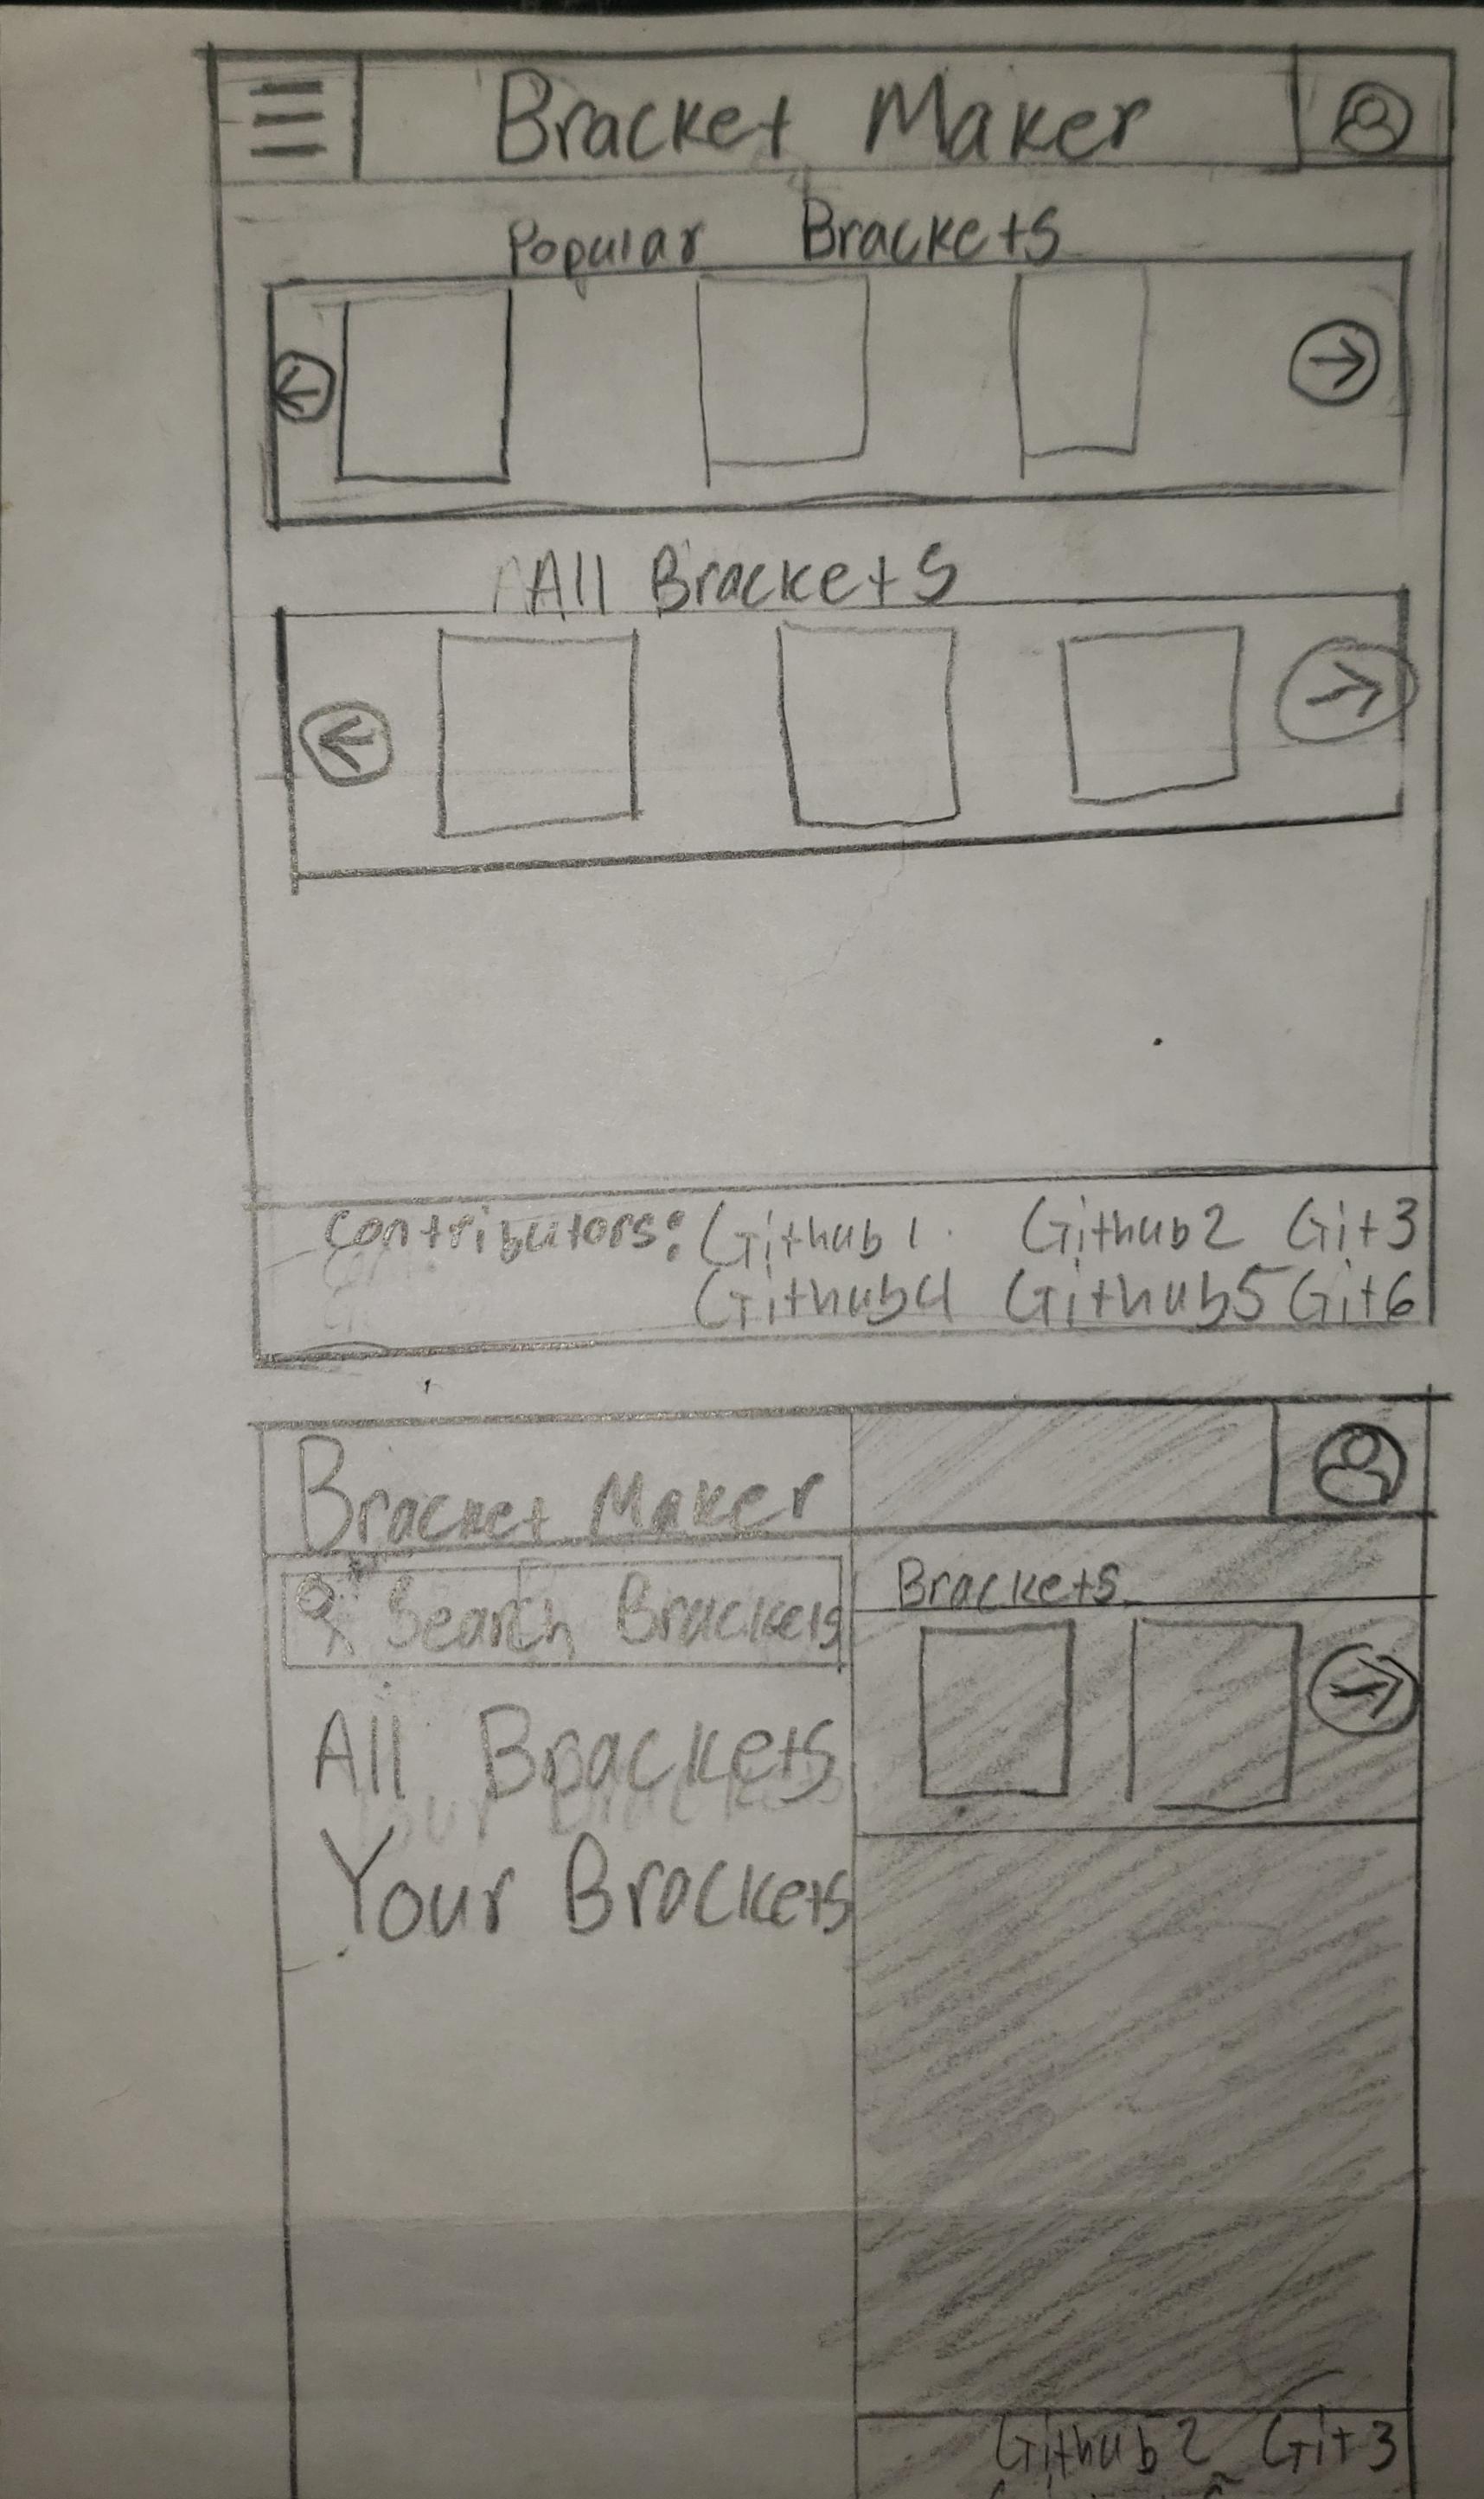 Bracket Maker
Popular Brackets
All Brackets
Contributors: Github1 Github2 Git3
Github4 Github5 Git6
Bracket Maker
Search Brackets
Brackets
All Brackets
Your Brackets
Github2 Git3